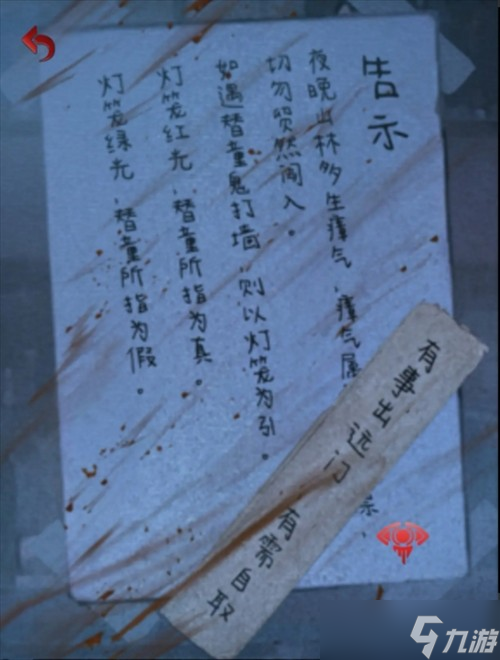 告示
夜晚山林多生瘴气，瘴气属
切勿贸然闯入。
如遇替童鬼打墙，则以灯笼为引。
灯笼红光，替童所指为真。
灯笼绿光，替童所指为假。
有事出远门
有需自取
九游